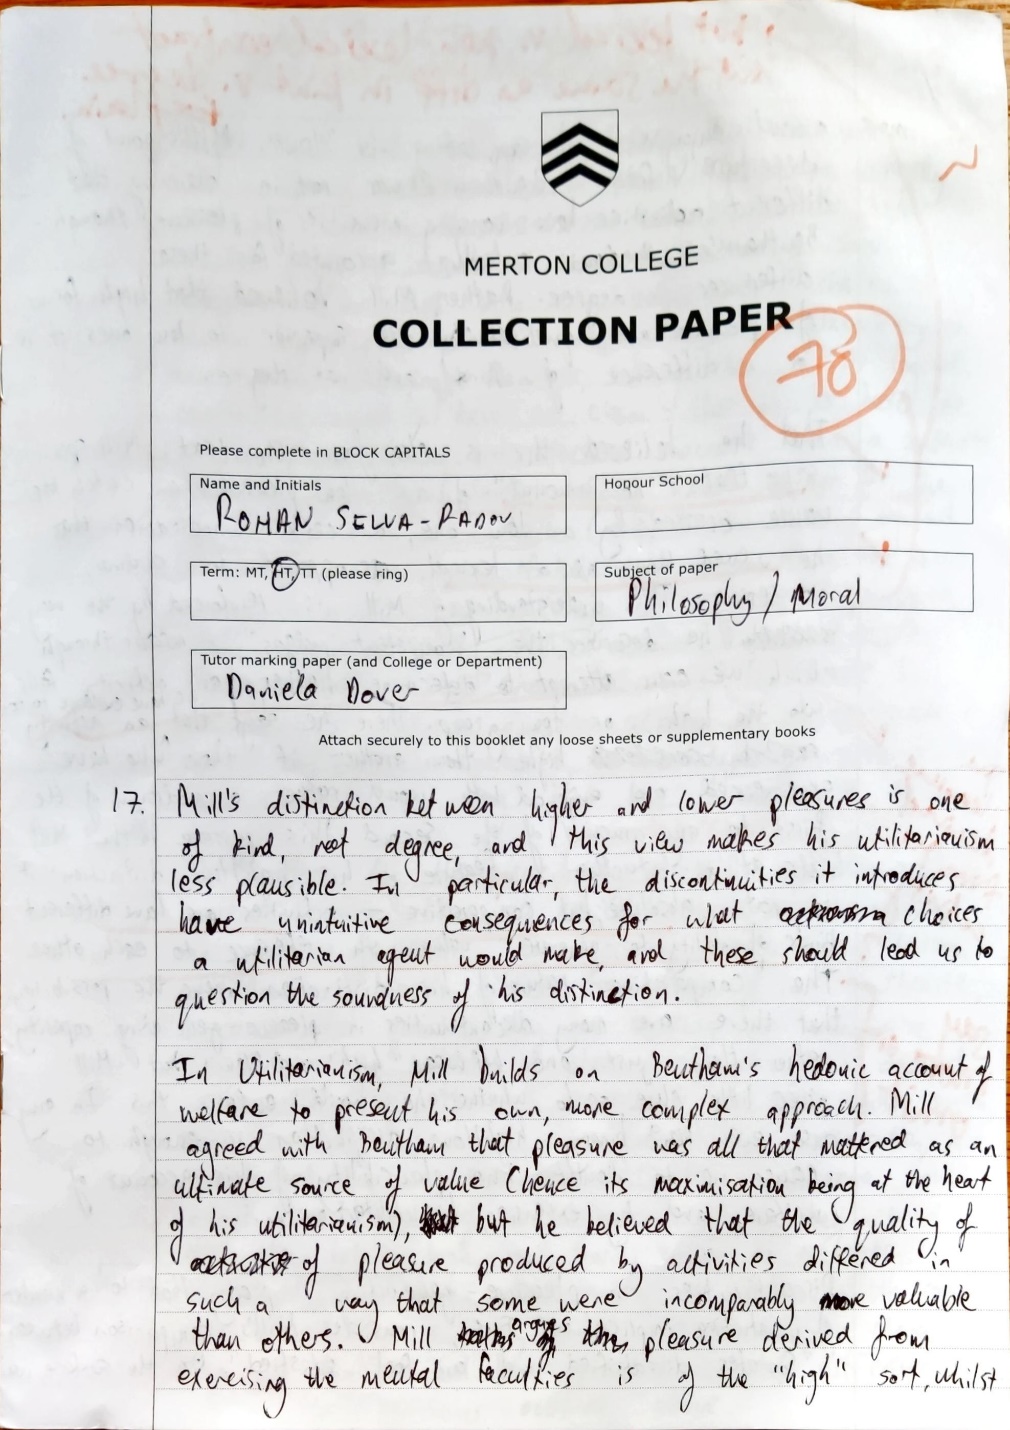 MERTON COLLEGE
COLLECTION PAPER
78
Please complete in BLOCK CAPITALS
Name and Initials
ROMAN SELVA-RADOV
Honour School
Term: MT, HT, TT (please ring)
Subject of paper
Philosophy / Moral
Tutor marking paper (and College or Department)
Daniela Dover
Attach securely to this booklet any loose sheets or supplementary books
17. Mill's distinction between higher and lower pleasures is one
of kind, not degree, and this view makes his utilitarianism
less plausible. In particular, the discontinuities it introduces
have unintuitive consequences for what choices
a utilitarian agent would make, and these should lead us to
question the soundness of his distinction.
In Utilitarianism, Mill builds on Bentham's hedonic account of
welfare to present his own, more complex approach. Mill
agreed with Bentham that pleasure was all that mattered as an
ultimate source of value (hence its maximisation being at the heart
of his utilitarianism), but he believed that the quality of
of pleasure produced by activities differed in
such a way that some were incomparably more valuable
than others. Mill argues pleasure derived from
exercising the mental faculties is of the "high" sort, whilst